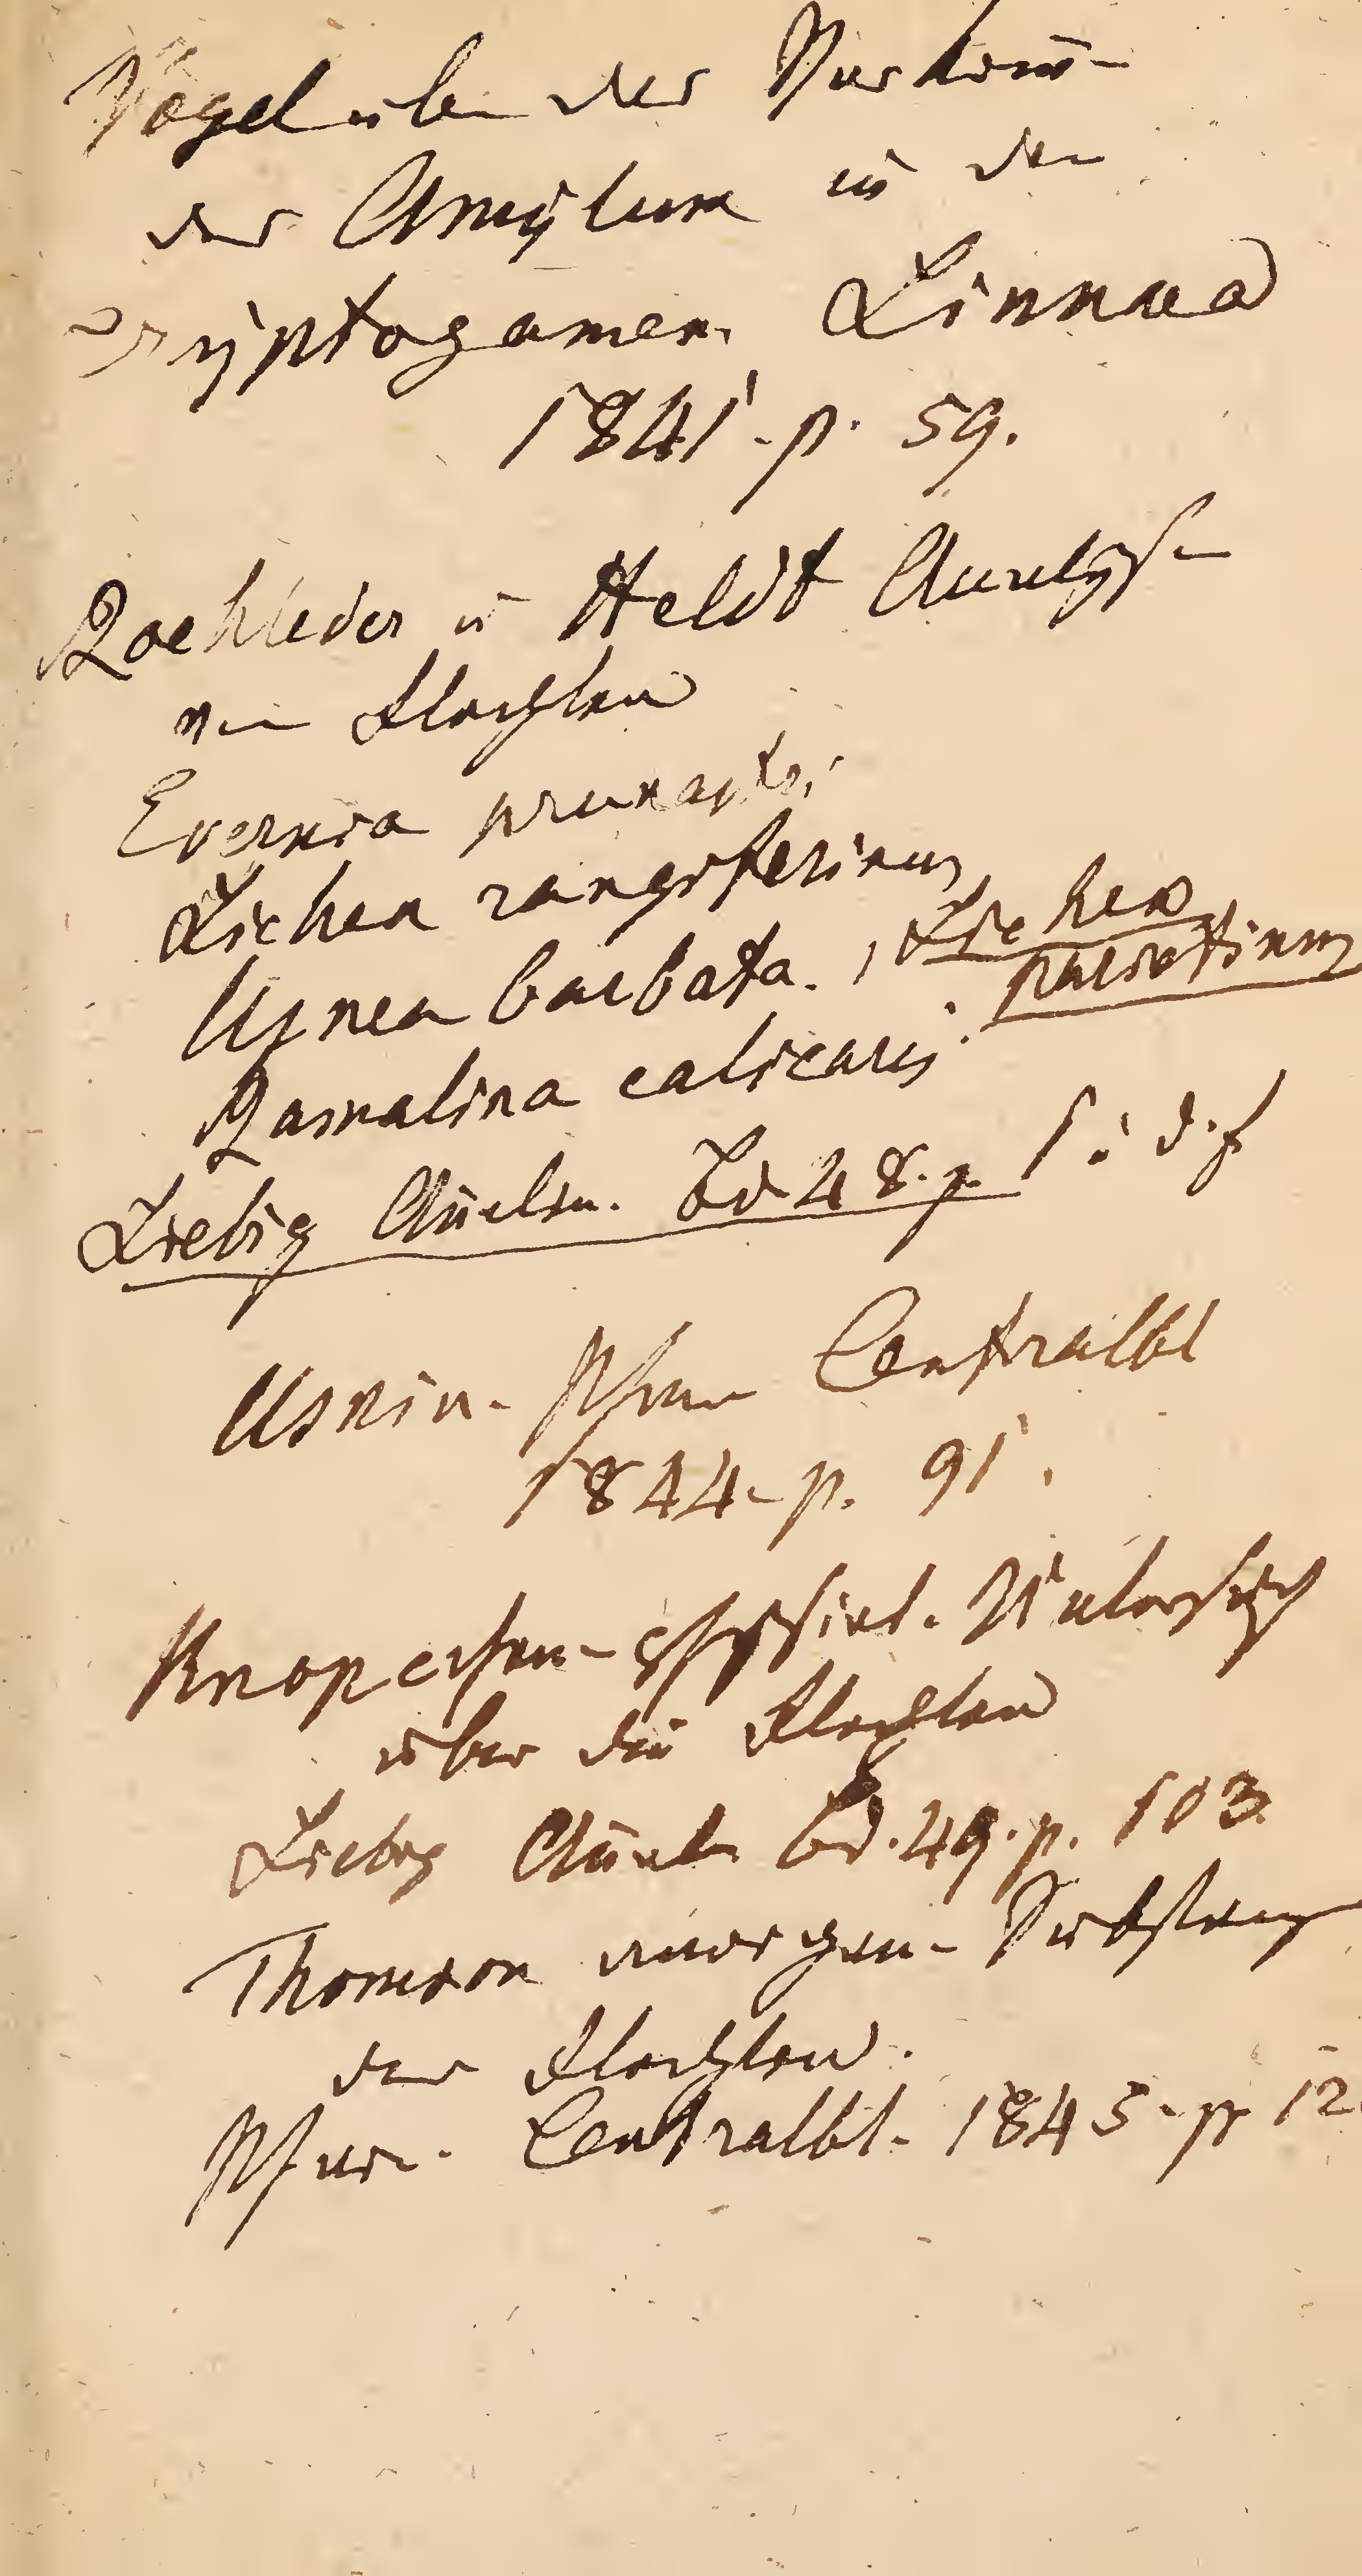 Vogel über das Vorkom-
des Amylum in den
Cryptogamen Linnaea
1841. p. 59.
Rochleder u Heldt Analyse
von Flechten
Evernia prunastri
Lichen rangiferinus
Usnea barbata. , Lichen
parietinus
Ramalina calicaris.
Liebig Annalen. Bd 48. p. 1. u. d. f
Usnin. Pharm Centralbl
1844. p. 91.
Knop chem. physiol. Untersuch
über die Flechten
Liebig Annal. Bd. 49. p. 103.
Thomson unorgan. Substanz
der Flechten.
Pharm. Centralbl. 1845. p 12